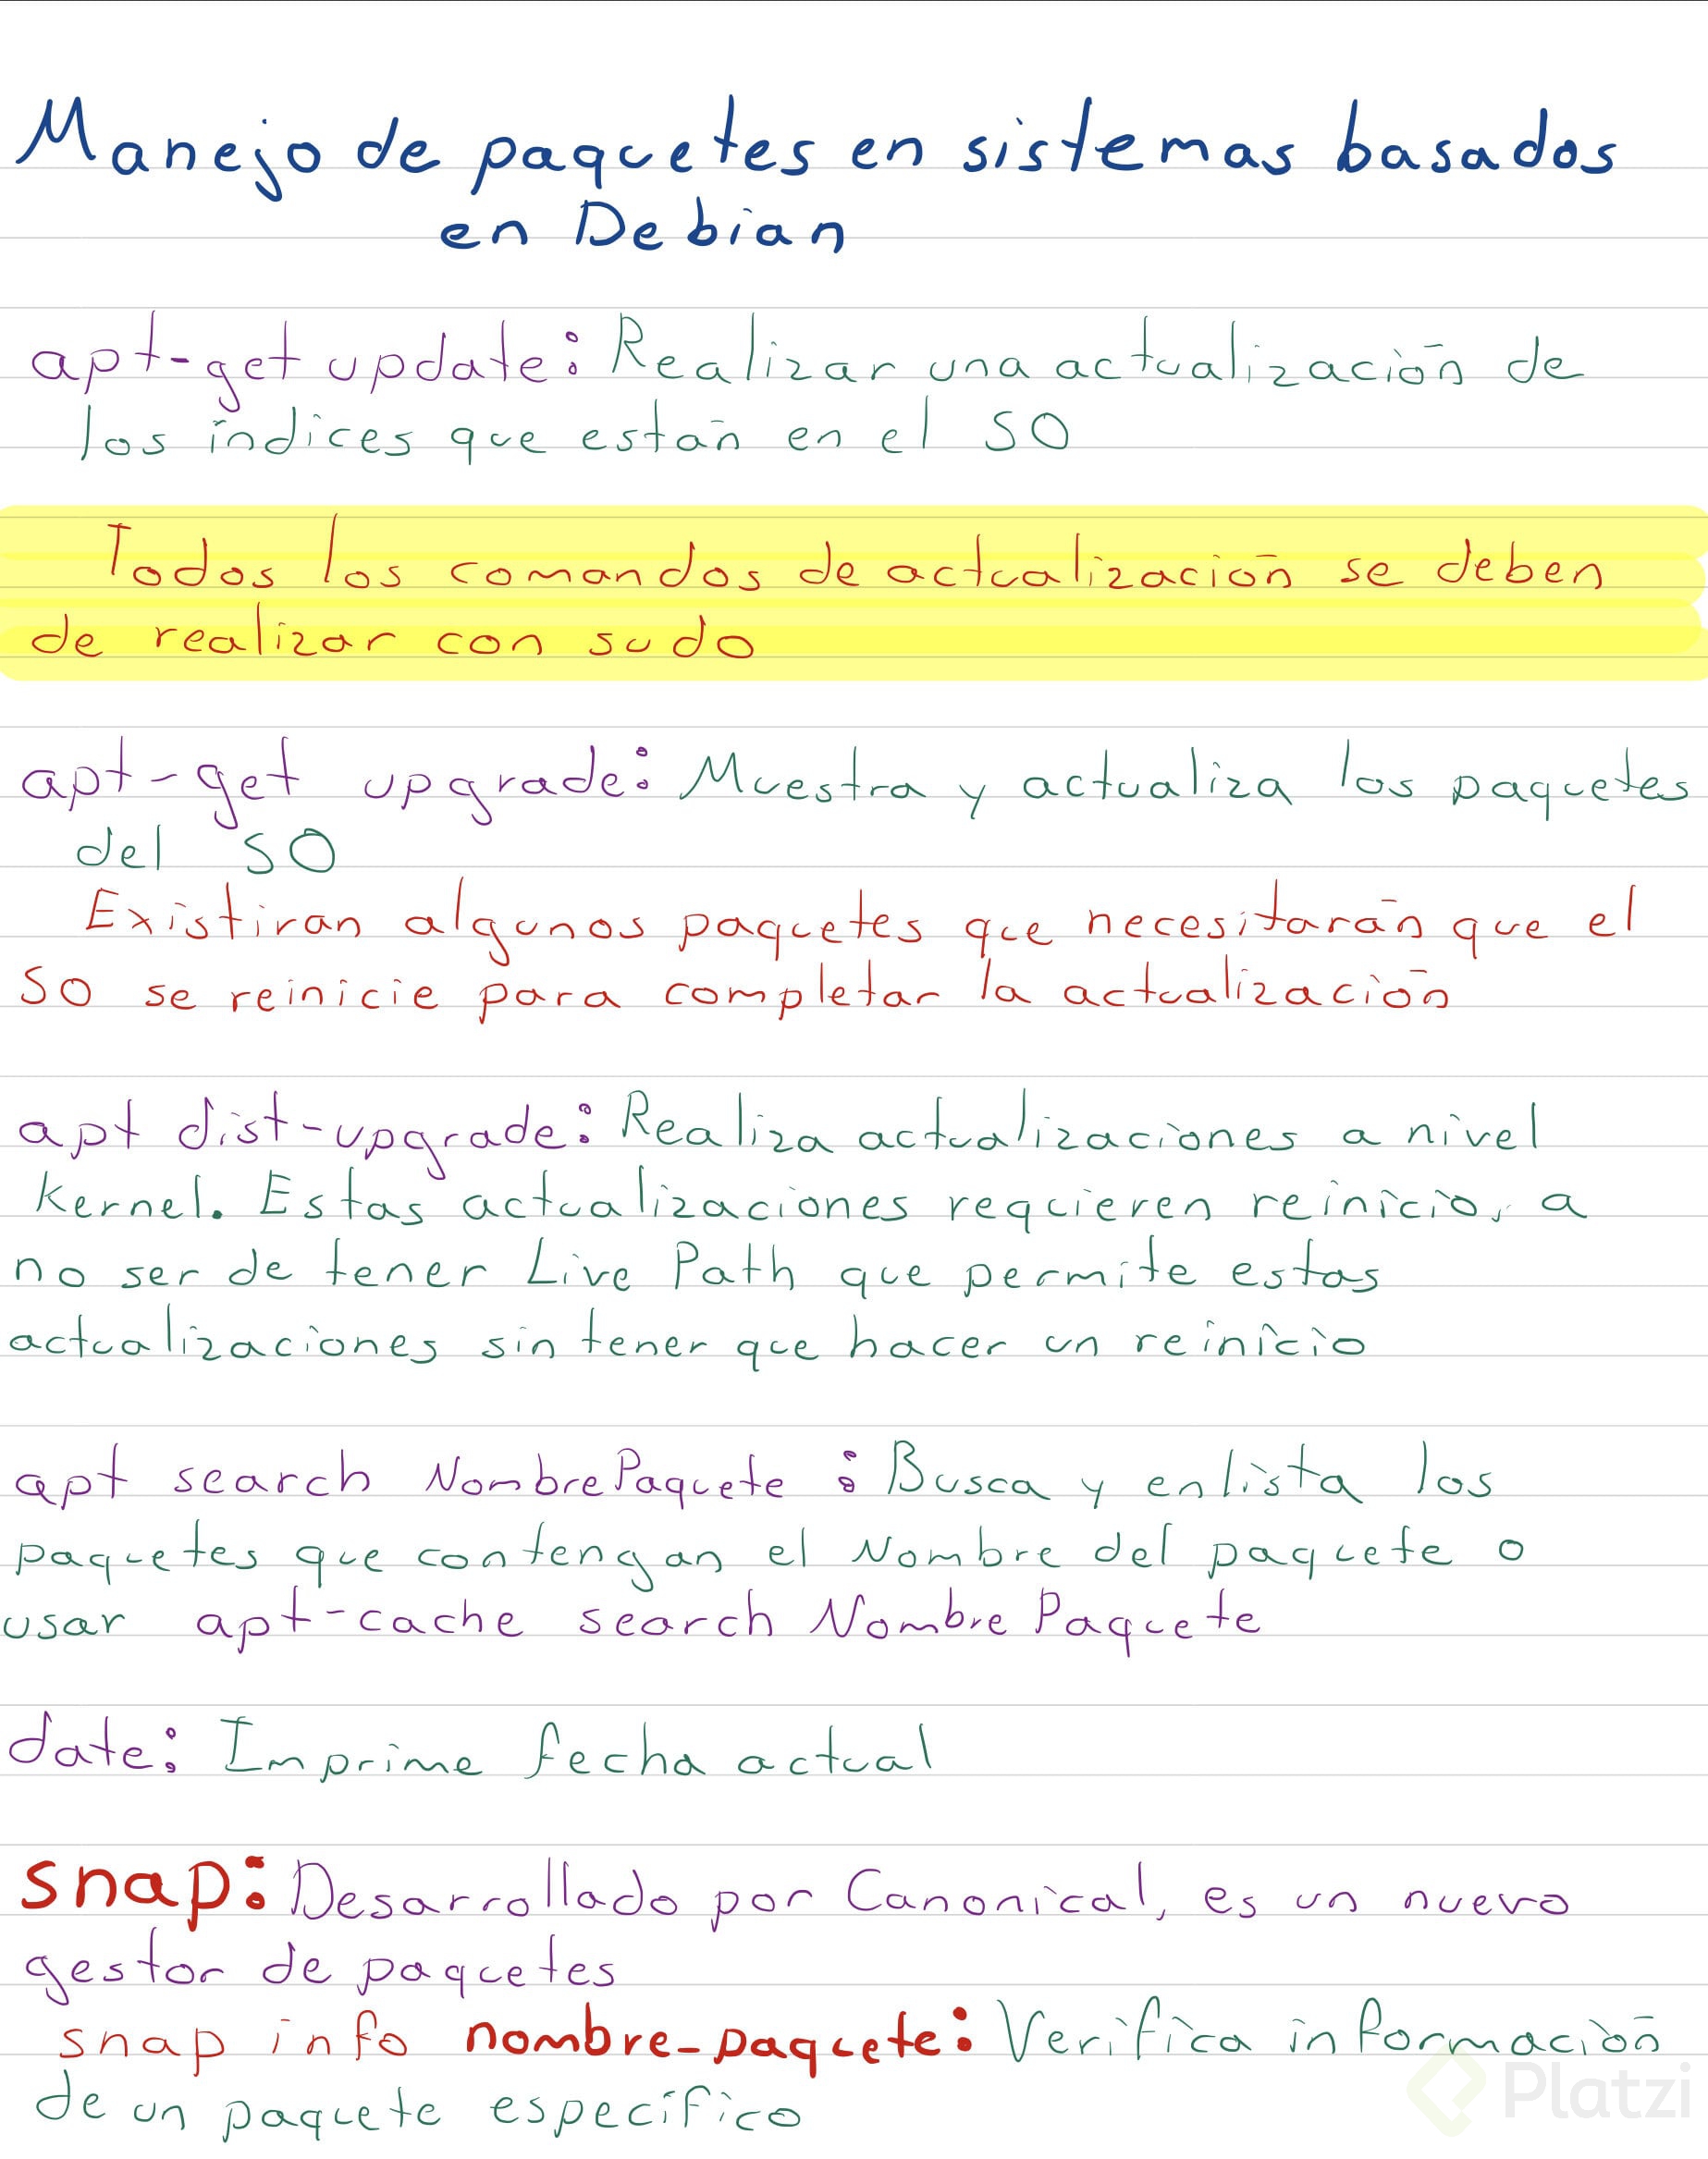 Manejo de paquetes en sistemas basados
en Debian
apt-get update: Realizar una actualización de
los índices que están en el SO
Todos los comandos de actualización se deben
de realizar con sudo
apt-get upgrade: Muestra y actualiza los paquetes
del SO
Existiran algunos paquetes que necesitarán que el
SO se reinicie para completar la actualización
apt dist-upgrade: Realiza actualizaciones a nivel
kernel. Estas actualizaciones requieren reinicio, a
no ser de tener Live Path que permite estas
actualizaciones sin tener que hacer un reinicio
apt search NombrePaquete : Busca y enlista los
paquetes que contengan el Nombre del paquete o
usar apt-cache search NombrePaquete
date: Imprime fecha actual
snap: Desarrollado por Canonical, es un nuevo
gestor de paquetes
snap info nombre-paquete: Verifica información
de un paquete específico
Platzi